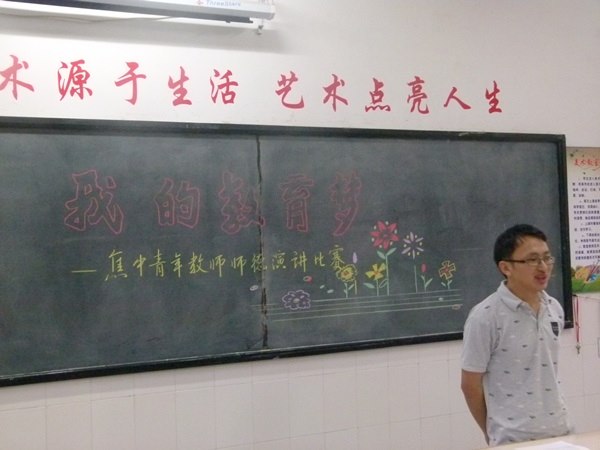 ThreeStars
术源于生活 艺术点亮人生
我的教育梦
—焦中青年教师师德演讲比赛